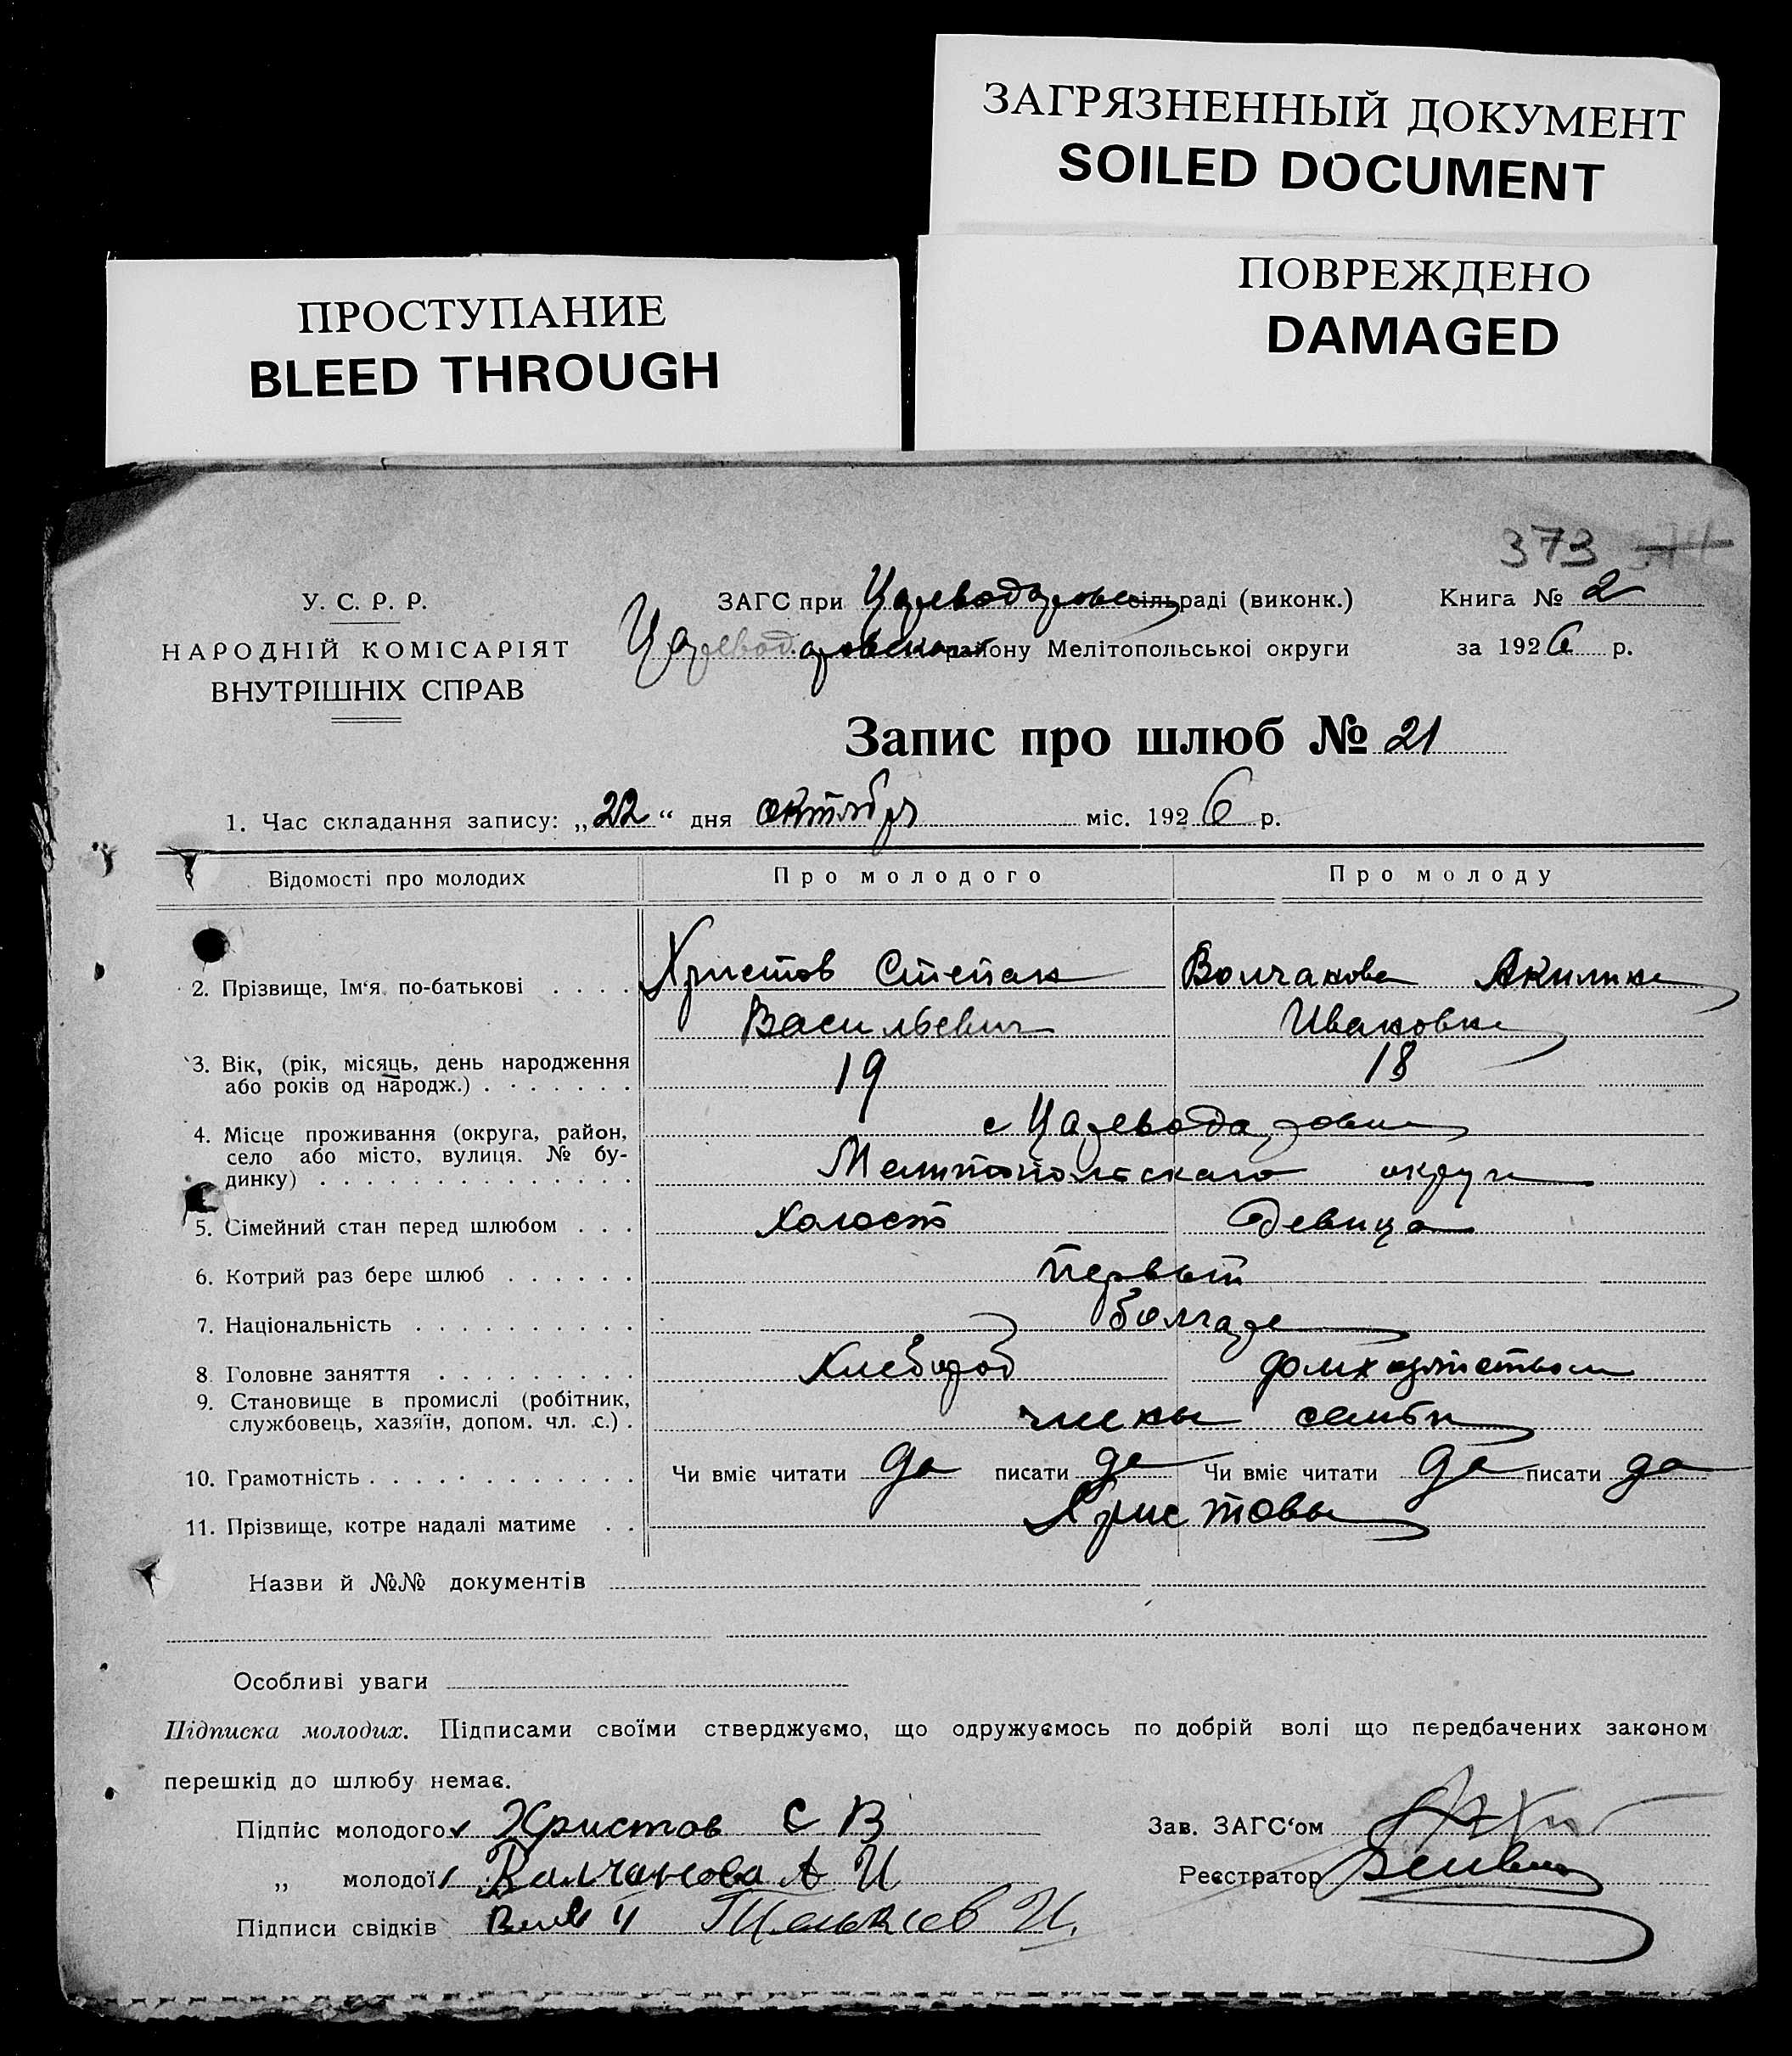 ЗАГРЯЗНЕННЫЙ ДОКУМЕНТ
SOILED DOCUMENT
ПРОСТУПАНИЕ
BLEED THROUGH
ПОВРЕЖДЕНО
DAMAGED
373
У. С. Р. Р.
НАРОДНІЙ КОМІСАРІЯТ
ВНУТРІШНІХ СПРАВ
ЗАГС при Цареводаровск сільраді (виконк.)
Цареводаровском району Мелітопольської округи
Книга № 2
за 1926 р.
Запис про шлюб № 21
1. Час складання запису: „22“ дня октября міс. 1926 р.
Відомості про молодих Про молодого Про молоду
2. Прізвище, Ім‘я по-батькові . . . . Христов Степан Волчанова Акилина
Васильевич Ивановна
3. Вік, (рік, місяць, день народження
або років од народж.) . . . . . . . 19 18
4. Місце проживання (округа, район,
село або місто, вулиця. № бу-
динку) . . . . . . . . . . . . . .
с Цареводаровка
Мелитопольскаго округа
5. Сімейний стан перед шлюбом . . . Холост Девица
6. Котрий раз бере шлюб . . . . . . первый
7. Національність . . . . . . . . . . болгаре
8. Головне заняття . . . . . . . . . Хлебороб домхозяйством
9. Становище в промислі (робітник,
службовець, хазяїн, допом. чл. с.) . члены семьи
10. Грамотність . . . . . . . . . . . . Чи вміє читати да писати да Чи вміє читати да писати да
11. Прізвище, котре надалі матиме . . Христовы
Назви й №№ документів
Особливі уваги
Підписка молодих. Підписами своїми стверджуємо, що одружуємось по добрій волі що передбачених законом
перешкід до шлюбу немає.
Підпис молодого Христов С В
„ молодої Валчанова А И
Підписи свідків
Зав. ЗАГС‘ом
Реєстратор